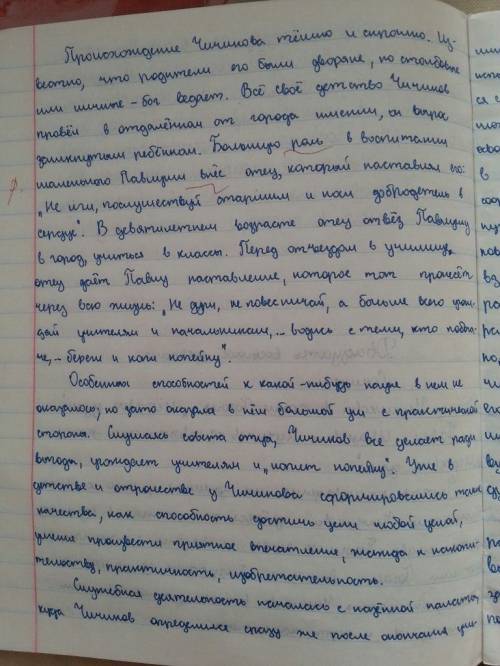 Происхождение Чичикова тёмно и скромно. Из-
вестно, что родители его были дворяне, но столбовые
или личные - бог ведает. Всё своё детство Чичиков
провёл в отдалённом от города имении, он вырос
замкнутым ребёнком. Большую роль в воспитании
р. маленького Павлуши внёс отец, который наставлял его:
„Не лги, послушествуй старшим и носи добродетель в
сердце". В девятилетнем возрасте отец отвёз Павлушу
в город, учиться в классы. Перед отъездом в училище,
отец даёт Павлу наставление, которое тот пронесёт
через всю жизнь: „Не дури, не повесничай, а больше всего угож-
дай учителям и начальникам, ... водись с теми, кто побога-
че, - береги и копи копейку".
Особенных способностей к какой-нибудь науке в нем не
оказалось; но зато оказался в нём большой ум с практической
стороны. Слушаясь совета отца, Чичиков все делает ради
выгоды, угождает учителям и „копит копейку". Уже в
детстве и отрочестве у Чичикова сформировались такие
качества, как способность достичь цели любой ценой,
умение произвести приятное впечатление, жажда к накопи-
тельству, практичность, изобретательность.
Служебная деятельность началась с казённой палаты,
куда Чичиков определился сразу же после окончания учи-